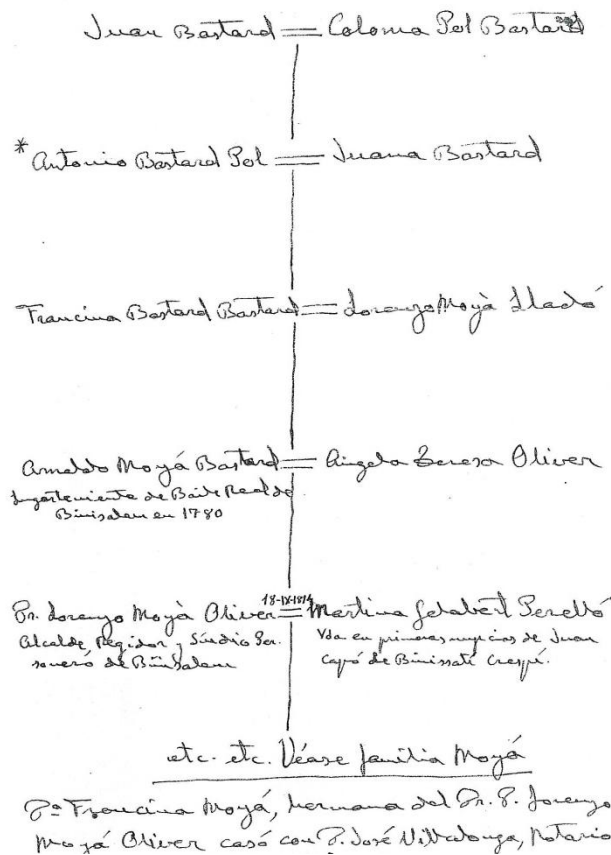 Juan Bastard = Coloma Pol Bastard
* Antonio Bastard Pol = Juana Bastard
Francina Bastard Bastard = Lorenzo Moyà Lladó
Arnaldo Moyá Bastard = Angela Teresa Oliver
Lugarteniente de Baile Real de
Binisalem en 1780
18-IX-1814
Dr. Lorenzo Moyà Oliver = Martina Gelabert Perelló
Alcalde, Regidor y Síndio Per.
sonero de Binisalem
Vda en primeras nupcias de Juan
Capó de Binissatí
etc. etc. Véase familia Moyá
Dª Francina Moyá, hermana del Dr. D. Lorenzo
Moyá Oliver casó con D. José Villalonga, Notario